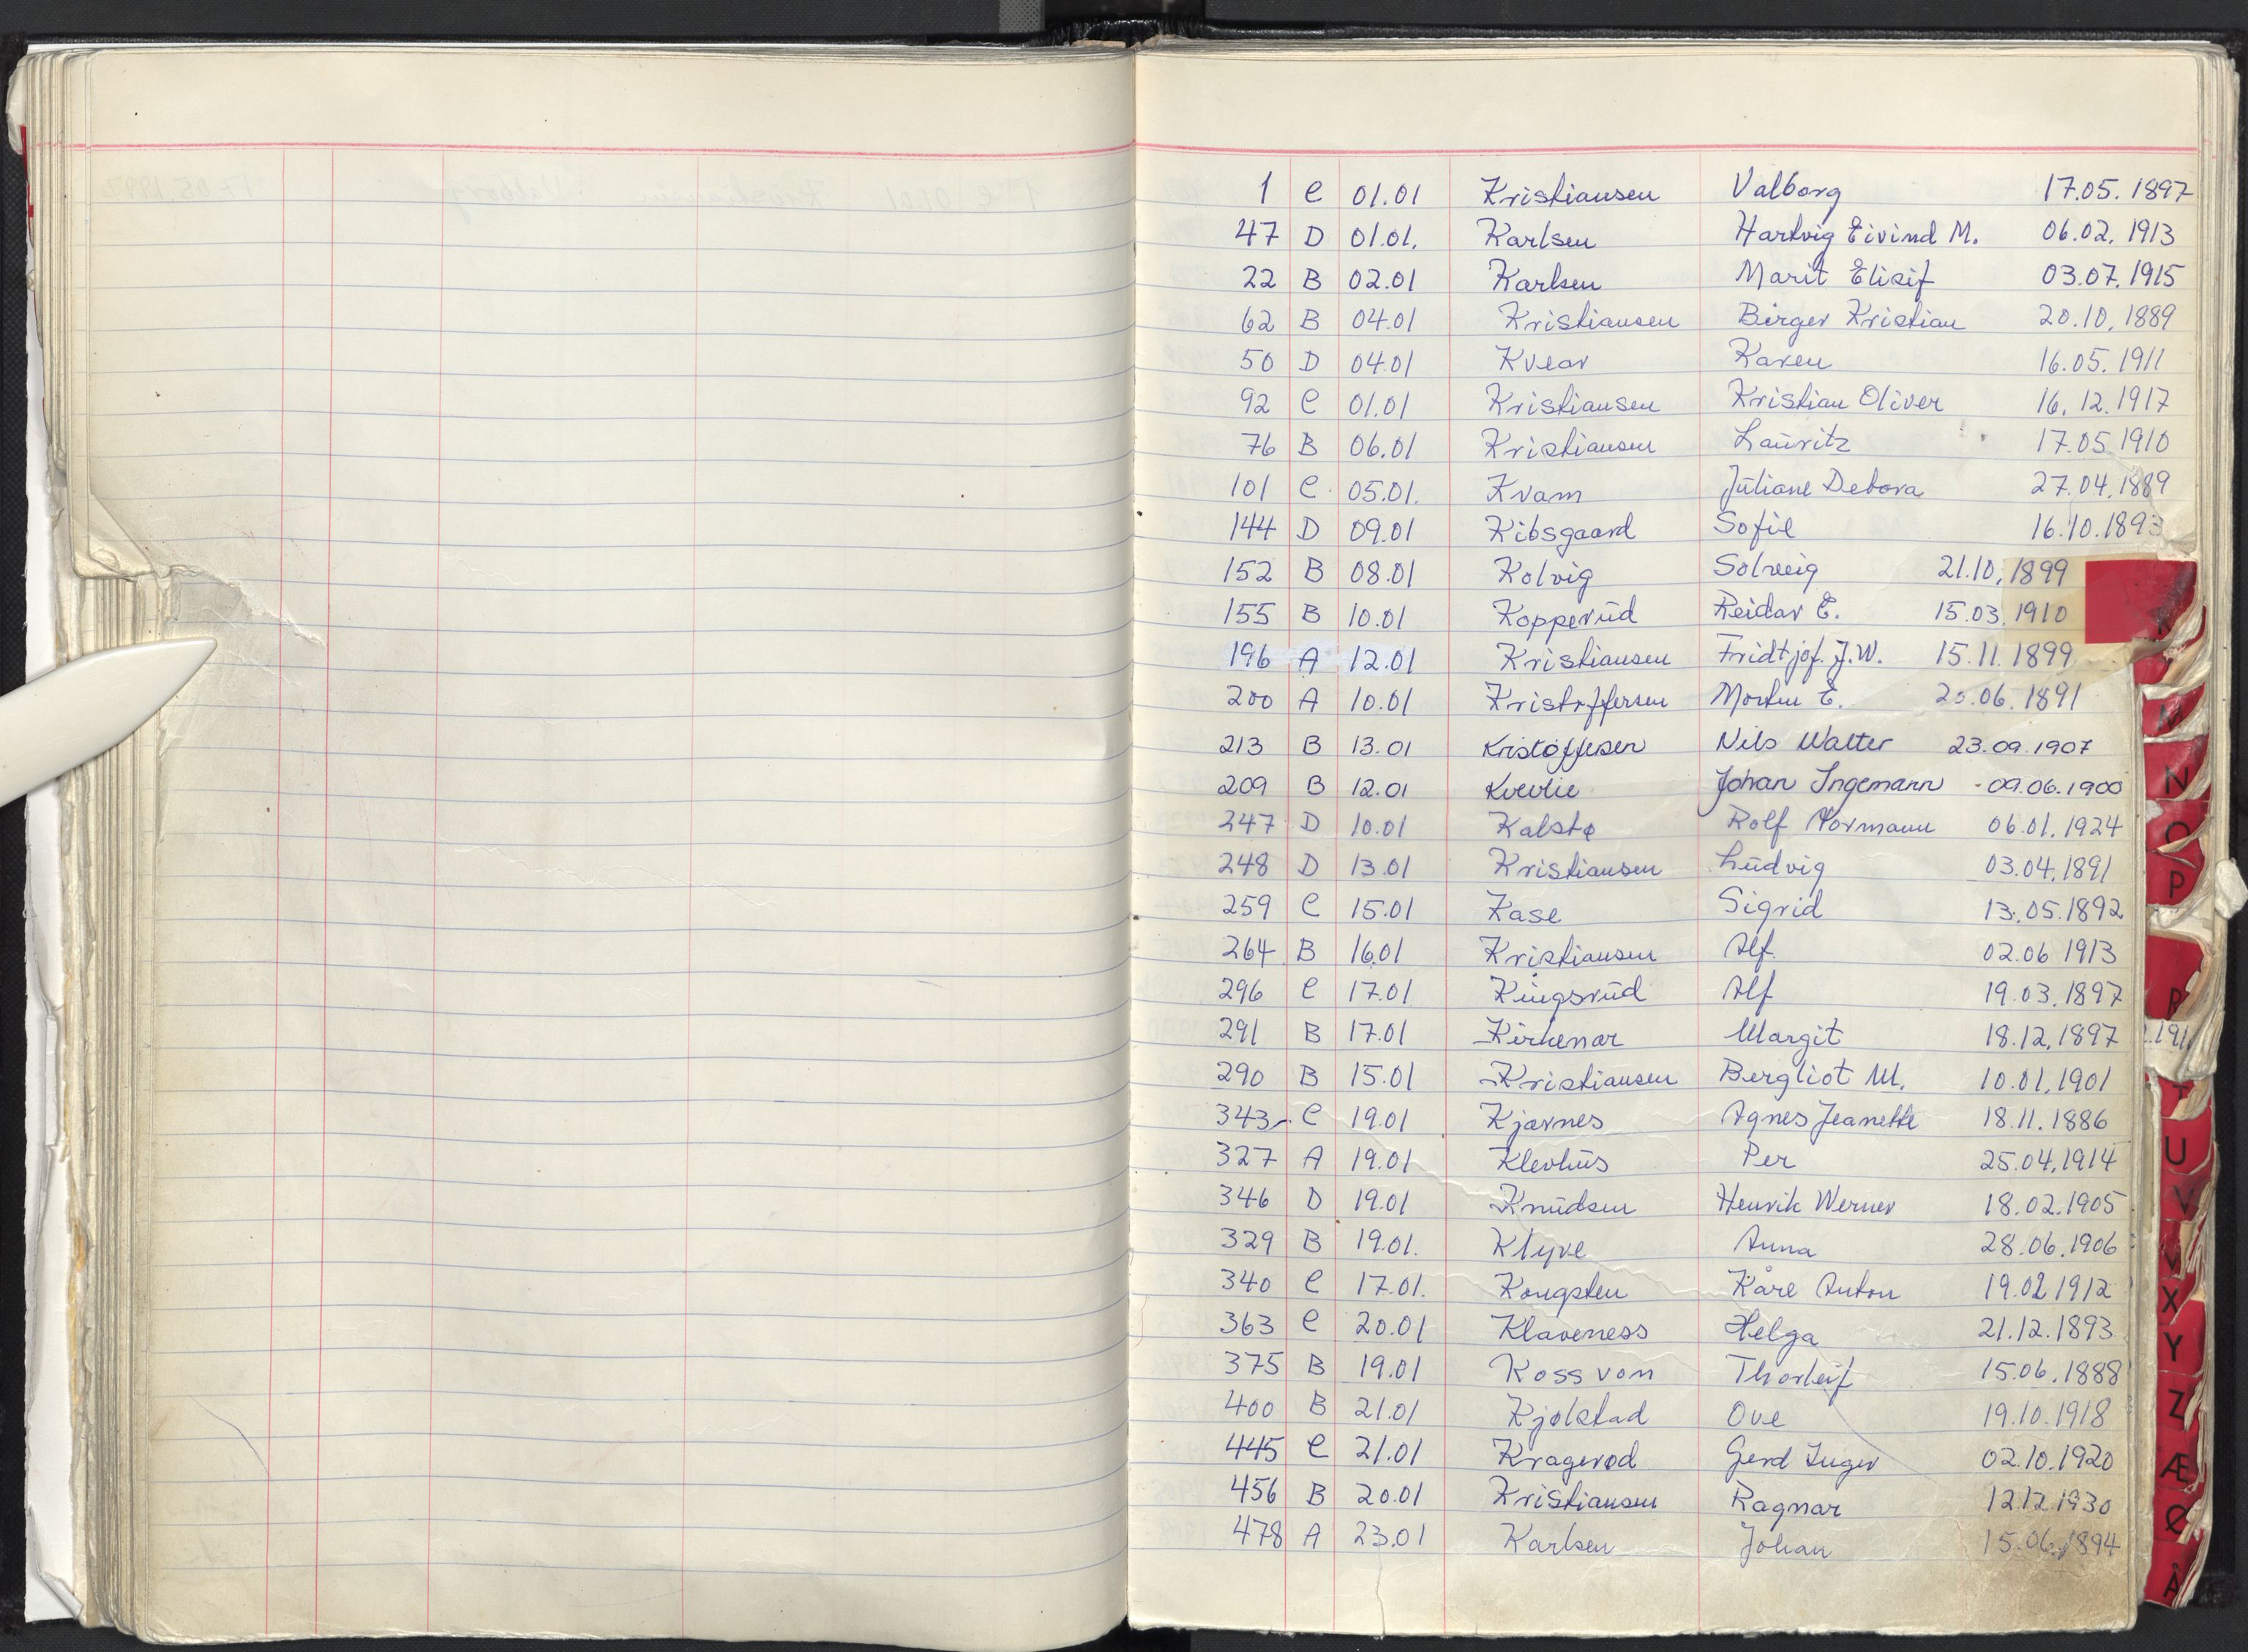 1 C 01.01 Kristiansen Valborg 17.05.1897
47 D 01.01. Karlsen Hartvig Eivind M. 06.02.1913
22 B 02.01 Karlsen Marit Elisif 03.07.1915
62 B 04.01 Kristiansen Birger Kristian 20.10.1889
50 D 04.01 Kvear Karen 16.05.1911
92 C 01.01 Kristiansen Kristian Oliver 16.12.1917
76 B 06.01 Kristiansen Lauritz 17.05.1910
101 C 05.01. Kvam Juliane Debora 27.04.1889
144 D 09.01 Kibsgaard Sofie 16.10.1893
152 B 08.01 Kolvig Solveig 21.10.1899
155 B 10.01 Kopperud Reidar E. 15.03.1910
196 A 12.01 Kristiansen Fridtjof. J.W. 15.11.1899
200 A 10.01 Kristoffersen Morten E. 20.06.1891
213 B 13.01 Kristoffesen Nils Walter 23.09.1907
209 B 12.01 Kvevlie Johan Ingemann - 09.06.1900
247 D 10.01 Kalstø Rolf Normann 06.01.1924
248 D 13.01 Kristiansen Ludvig 03.04.1891
259 C 15.01 Kase Sigrid 13.05.1892
264 B 16.01 Kristiansen Alf. 02.06.1913
296 C 17.01 Kingsrud Alf 19.03.1897
291 B 17.01 Kirkenær Margit 18.12.1897
290 B 15.01 Kristiansen Bergliot M. 10.01.1901
343 C 19.01 Kjærnes Agnes Jeanette 18.11.1886
327 A 19.01 Klevhus Per 25.04.1914
346 D 19.01 Knudsen Henrik Werner 18.02.1905
329 B 19.01. Klyve Anna 28.06.1906
340 C 17.01. Kongsten Kåre Anton 19.02.1912
363 C 20.01 Klaveness Helga 21.12.1893
375 B 19.01 Koss von Thorleif 15.06.1888
400 B 21.01 Kjølstad Ove 19.10.1918
445 C 21.01 Kragerød Gerd Inger 02.10.1920
456 B 20.01 Kristiansen Ragnar 12.12.1930
478 A 23.01 Karlsen Johan 15.06.1894
M
N
O
P
R
T
U
V
X
Y
Z
Æ
Ø
Å